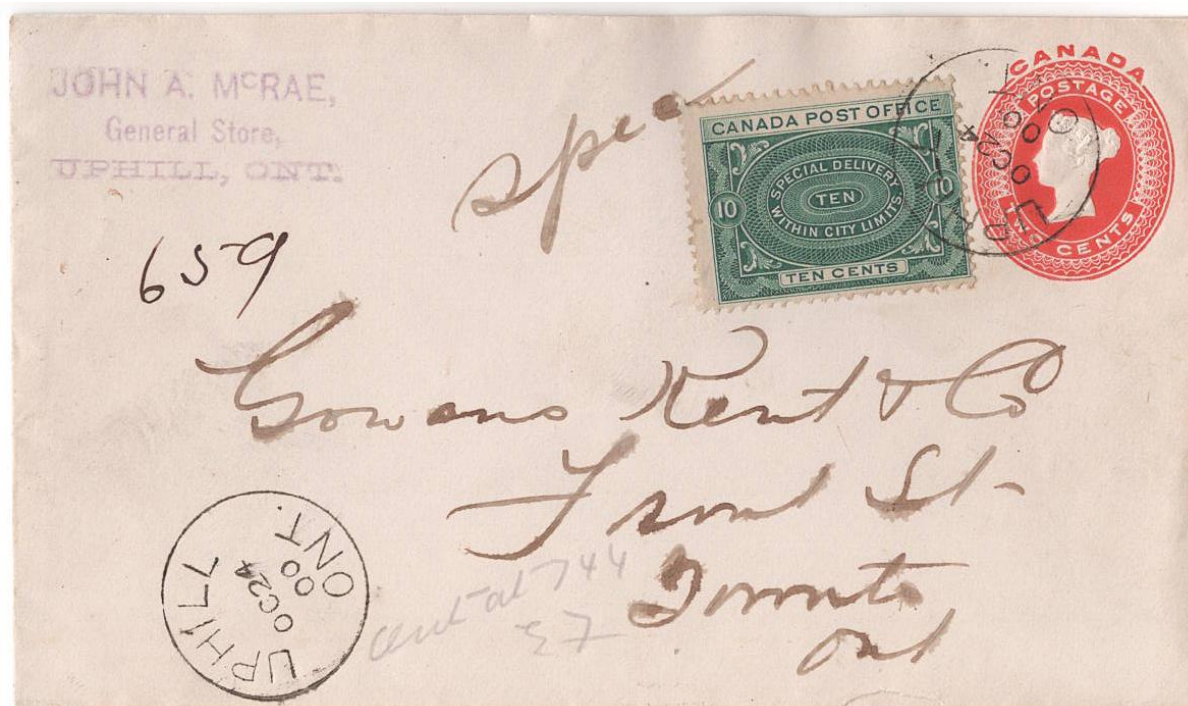 JOHN A. McRAE,
General Store,
UPHILL, ONT.
Spec
CANADA POST OFFICE
SPECIAL DELIVERY
10 TEN 10
WITHIN CITY LIMITS
TEN CENTS
CANADA
POSTAGE
TWO CENTS
659
Gowans Kent & Co
Front St.
Toronto
Ont
UPHILL
OC 24
00
ONT.
744